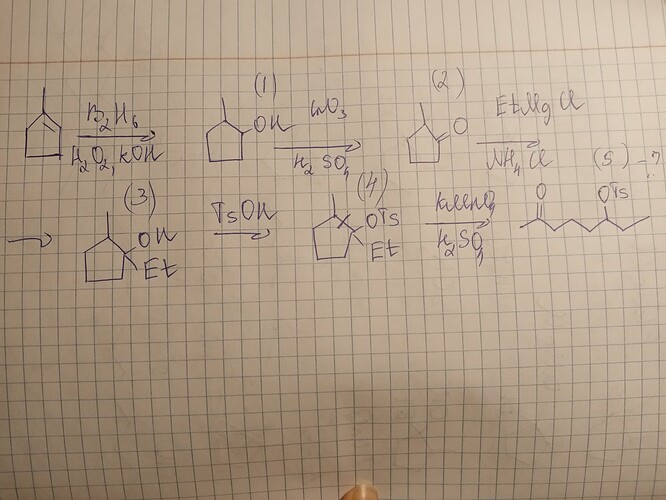 (1)
(2)
B2H6
H2O2, KOH
OH
CrO3
H2SO4
O
EtMgCl
NH4Cl
(3)
(4)
(5) - ?
OH
Et
TsOH
OTs
Et
KMnO4
H2SO4
O
OTs